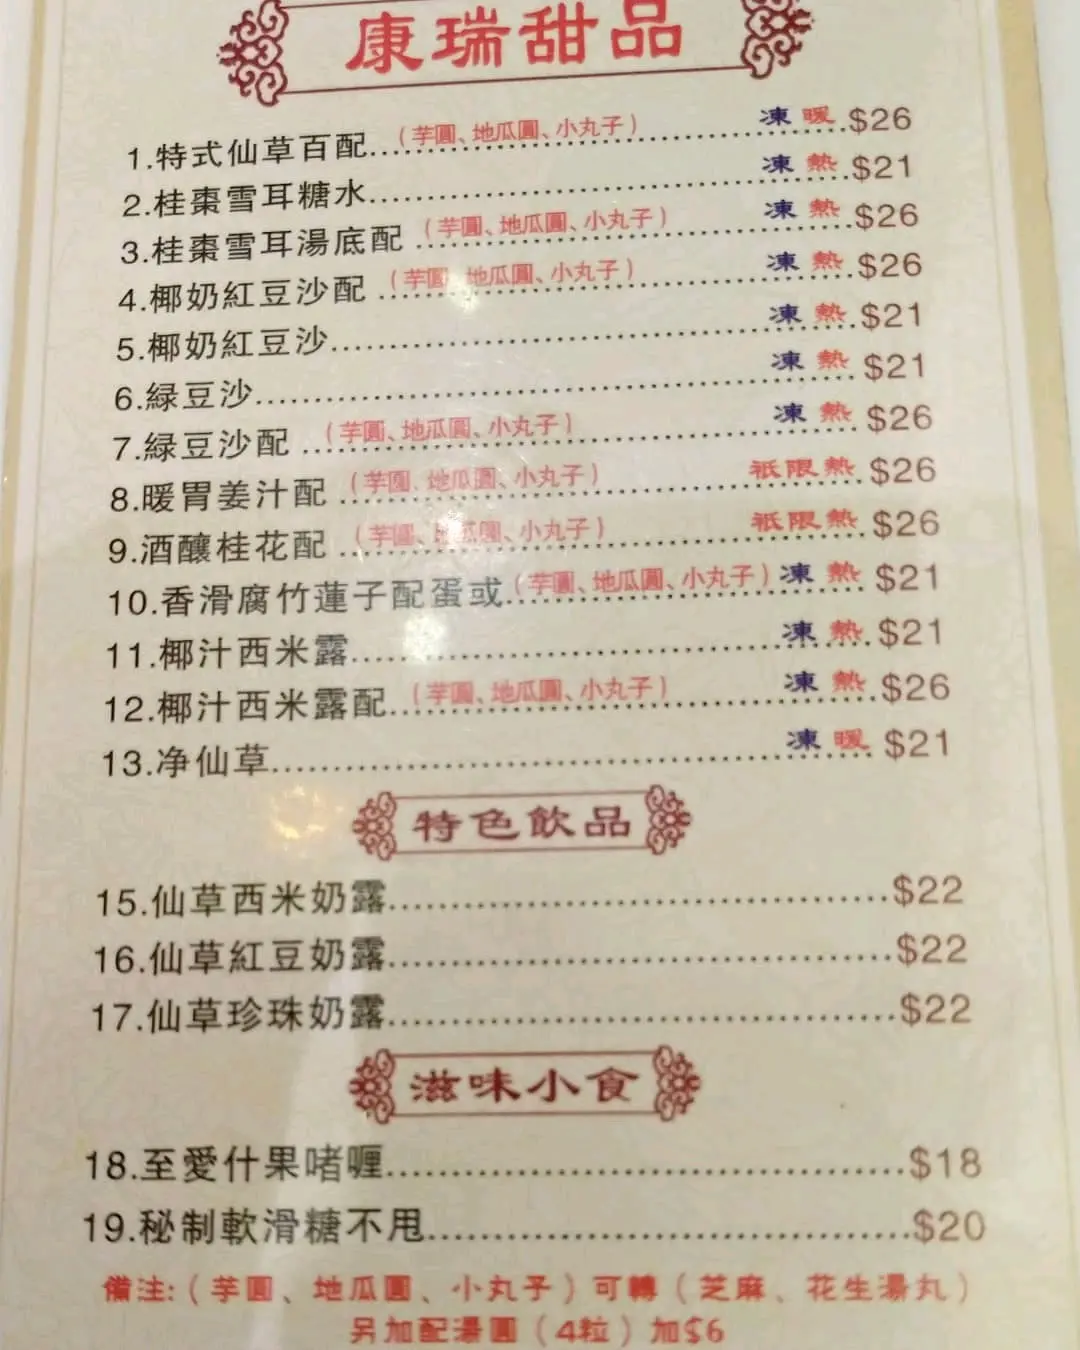 康瑞甜品
1.特式仙草百配...(芋圓、地瓜圓、小丸子) 凍 暖 $26
2.桂棗雪耳糖水... 凍 熱 $21
3.桂棗雪耳湯底配...(芋圓、地瓜圓、小丸子) 凍 熱 $26
4.椰奶紅豆沙配...(芋圓、地瓜圓、小丸子) 凍 熱 $26
5.椰奶紅豆沙... 凍 熱 $21
6.緑豆沙... 凍 熱 $21
7.緑豆沙配...(芋圓、地瓜圓、小丸子) 凍 熱 $26
8.暖胃姜汁配...(芋圓、地瓜圓、小丸子) 祇限熱 $26
9.酒釀桂花配...(芋圓、地瓜圓、小丸子) 祇限熱 $26
10.香滑腐竹蓮子配蛋或...(芋圓、地瓜圓、小丸子) 凍 熱 $21
11.椰汁西米露... 凍 熱 $21
12.椰汁西米露配...(芋圓、地瓜圓、小丸子) 凍 熱 $26
13.净仙草... 凍 暖 $21
特色飲品
15.仙草西米奶露...$22
16.仙草紅豆奶露...$22
17.仙草珍珠奶露...$22
滋味小食
18.至愛什果啫喱...$18
19.秘制軟滑糖不甩...$20
備注:(芋圓、地瓜圓、小丸子)可轉(芝麻、花生湯丸)
另加配湯圓(4粒)加$6